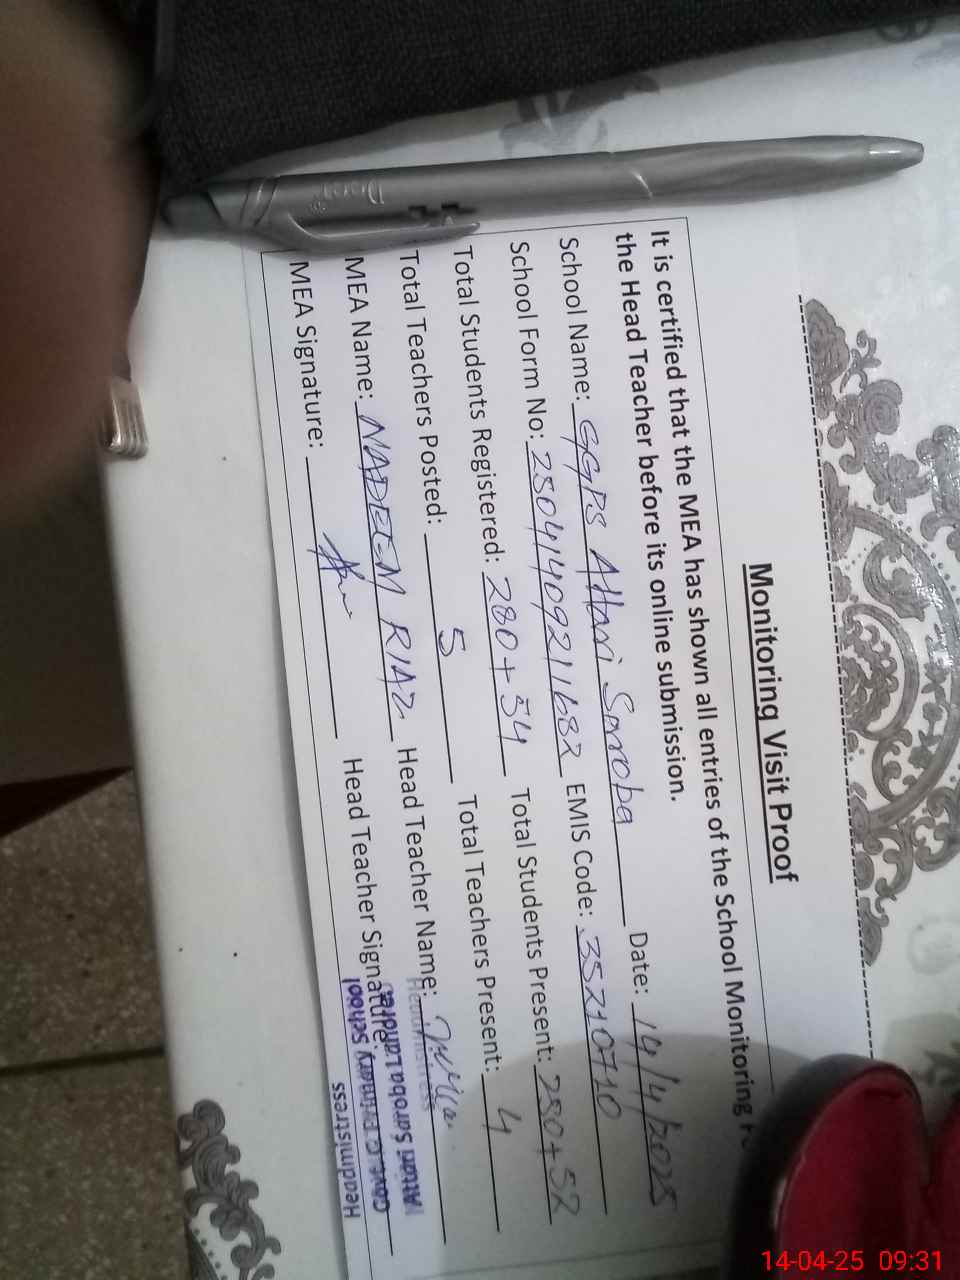 Monitoring Visit Proof
It is certified that the MEA has shown all entries of the School Monitoring
the Head Teacher before its online submission.
School Name: GGPS Attari Saroba Date: 14/4/2025
School Form No: 25041409211682 EMIS Code: 35210710
Total Students Registered: 280+54 Total Students Present: 250+52
Total Teachers Posted: 5 Total Teachers Present: 4
MEA Name: NADEEM RIAZ Head Teacher Name:
MEA Signature: Head Teacher Signature:
Headmistress
Attari Saroba Lahore
Primary School
Headmistress
14-04-25 09:31